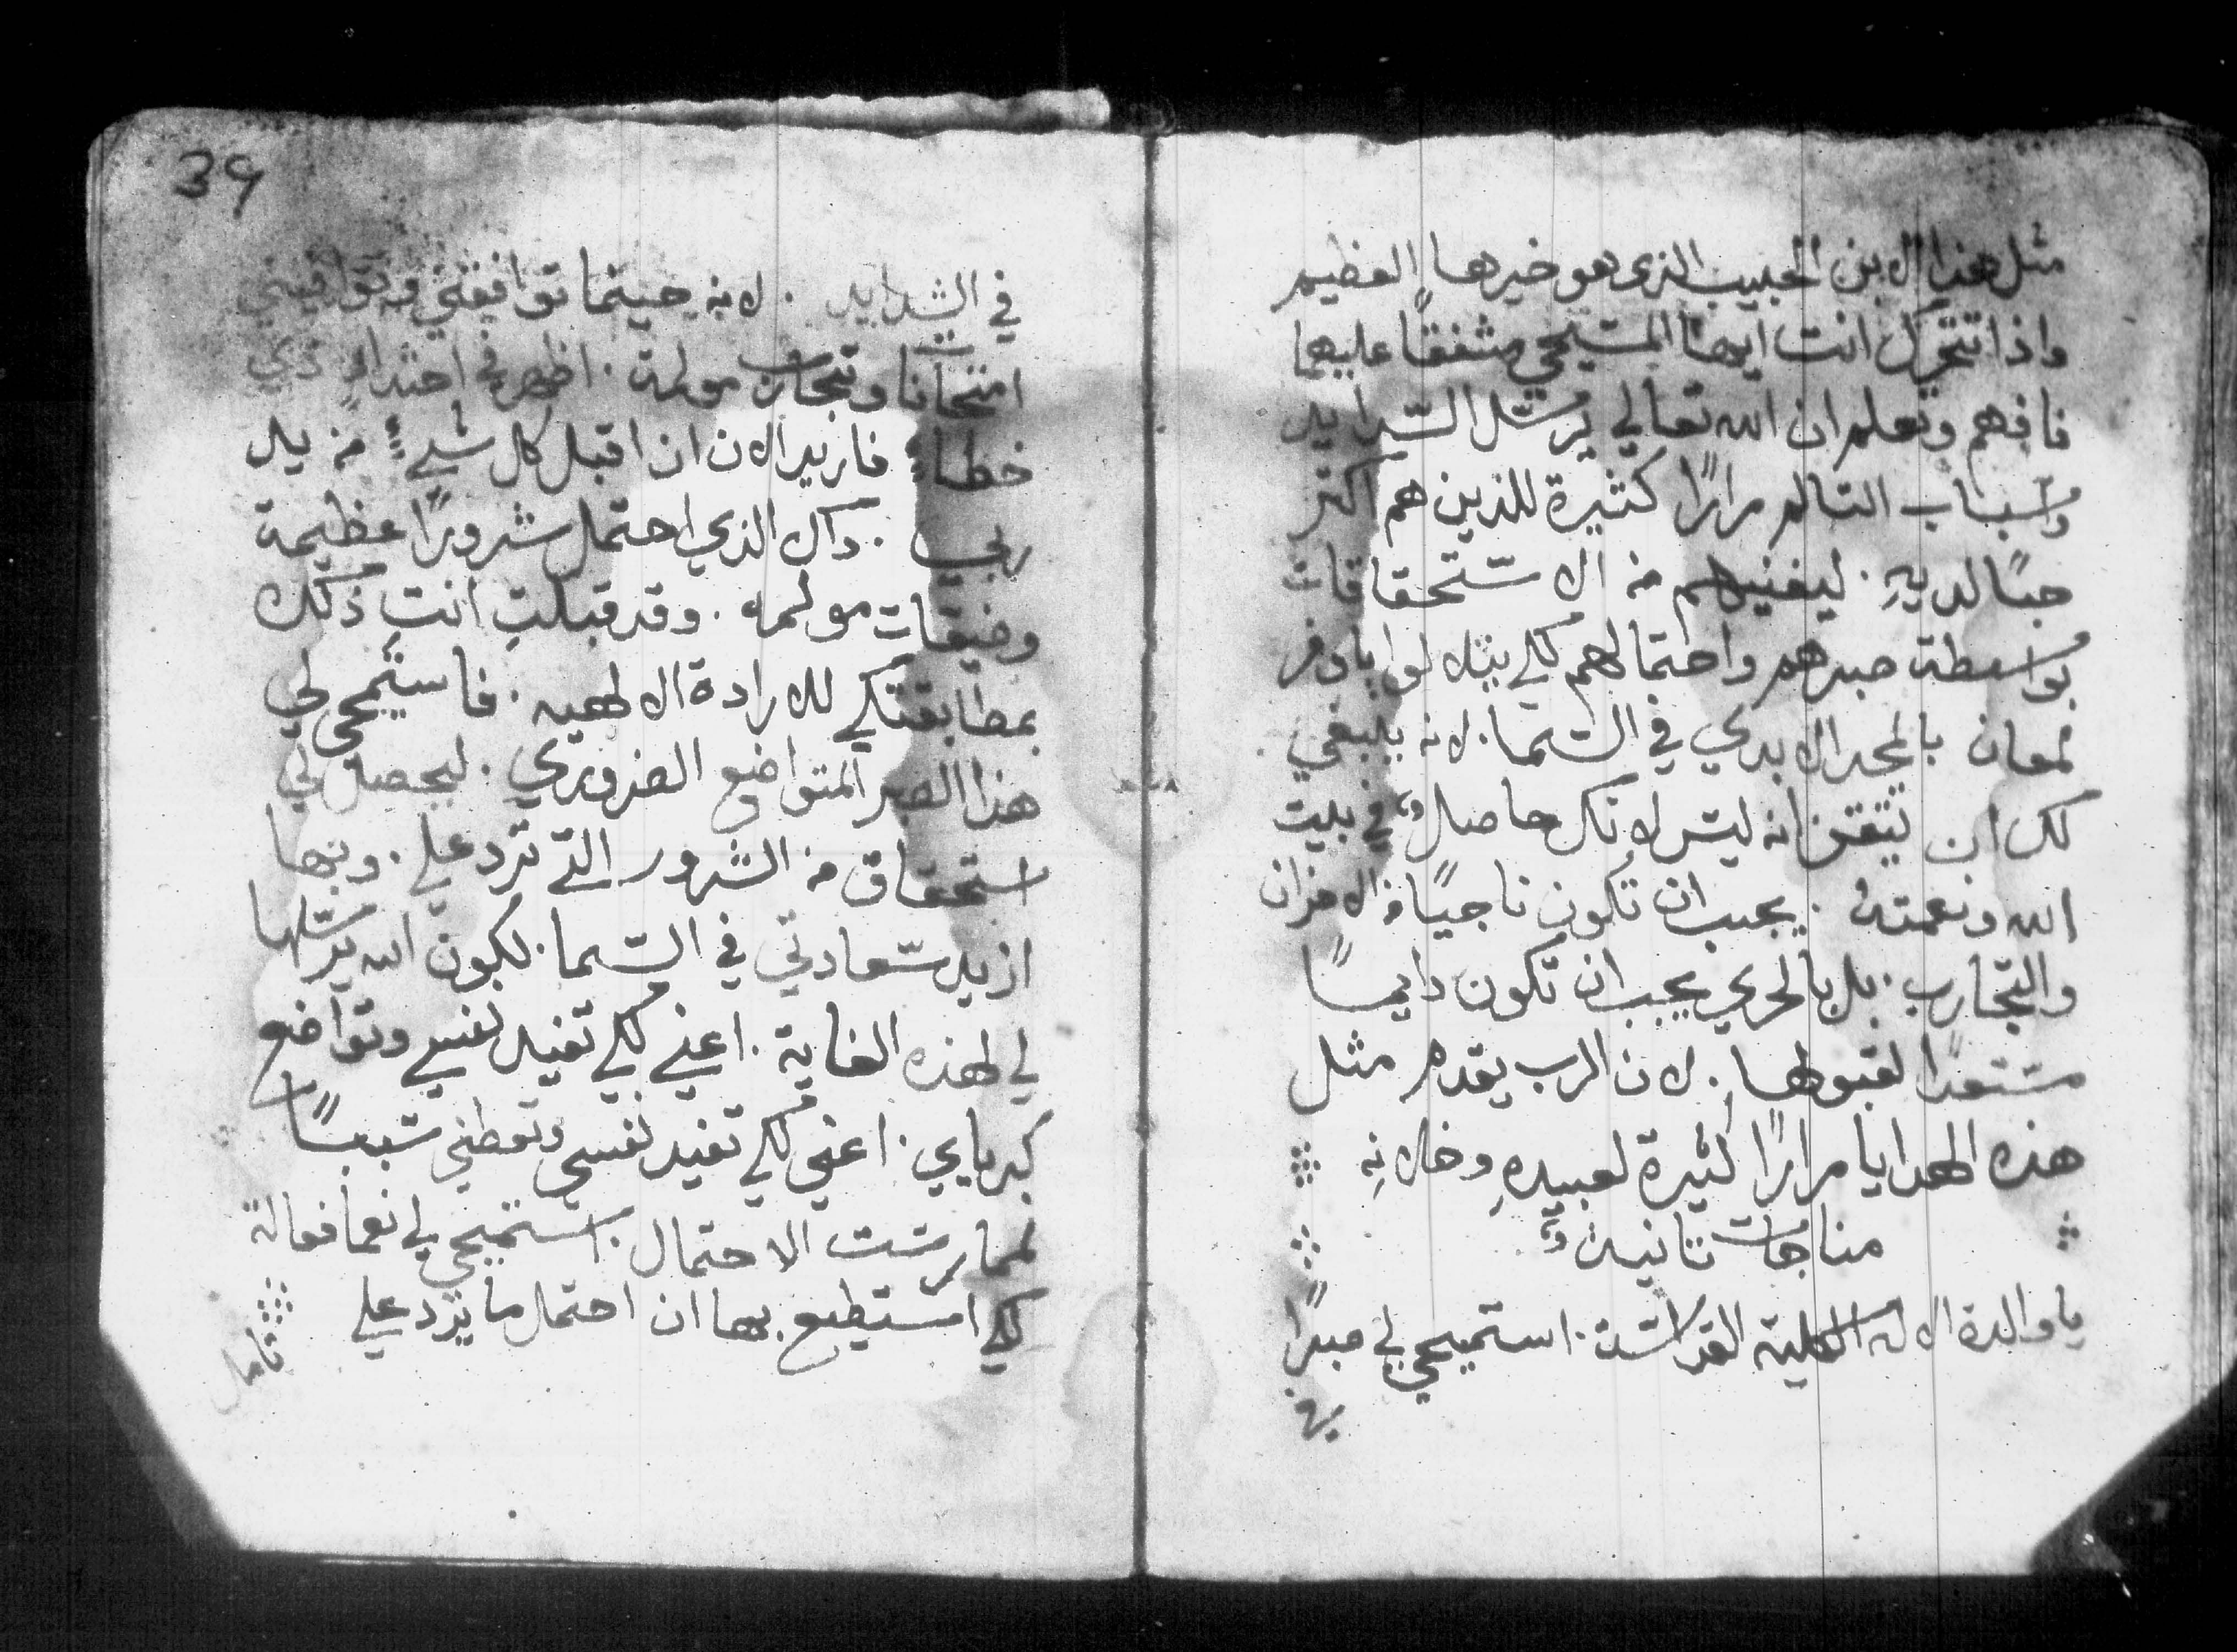 مثل هذا الابن الحبيب الذي هو خيرها العظيم
واذا تتحرك انت ايها المسيحي مشفقًا عليهما
فافهم وتعلم ان الله تعالي يرسل الشدايد
واسباب التالم مرارًا كثيرة للذين هم اكثر
حبًا لديهِ. ليغنيهم من الاستحقاقات
بواسطة صبرهم واحتمالهم لكي
لمعان بالمجد الابدي في السما. لانه ينبغي
لك ان تتيقن انه ليس لانك حاصل في بيت
الله ونعمتهُ. يجب ان تكون ناجيًا من الاحزان
والتجارب. بل بالحري يجب ان تكون دايمًا
مستعدًا لقبولها. لان الرب يقدم مثل
هذه الهدايا مرارًا كثيرة لعبيدهِ وخلانهِ
مناجات ثانية
يا والدة الاله الكلية القداسة. استميحي لي صبرًا
في الشدايد. لانه حينما توافقني
امتحانات وتجارب مولمة. اظهر في احتداد ذي
خطاء فاريد الان ان اقبل كل شيءٍ من يد
ربي. ذاك الذي احتمل شرورًا عظيمة
وضيقات مولمه. وقد قبلتِ انتِ ذلك
بمطابقتكي للارادة الالهيه. فاستميحي لي
هذا الصبر المتواضع الضروري. ليحصل لي
استحقاق من الشرور التي ترد علي. وبها
ازيد سعادتي في السما. لكون الله يرسلها
لي لهذه الغاية. اعني لكي تفيد نفسي وتواضع
كبريايي. اعني لكي تفيد نفسي وتعطني سببًا
لممارست الاحتمال. استميحي لي نعما فعالة
لكي استطيع بها ان احتمل ما يرد علي
تامل
39